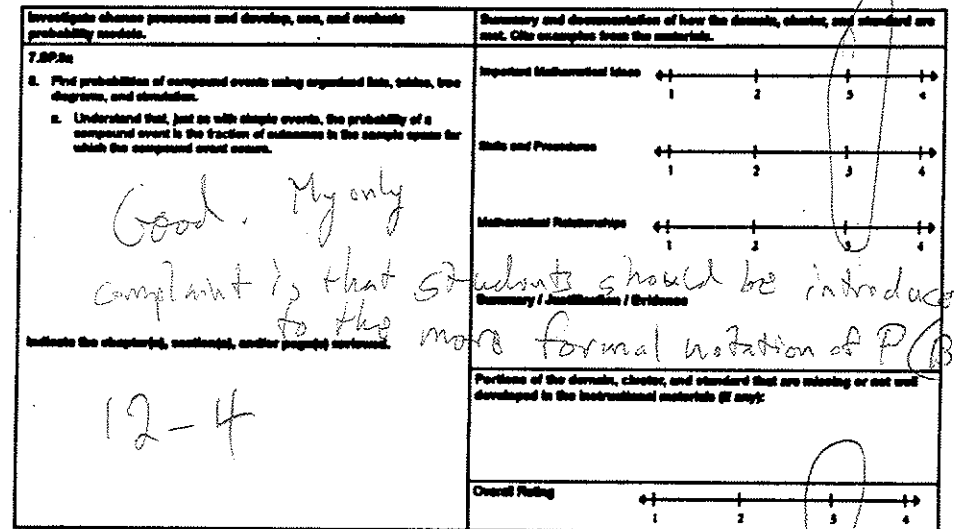 Investigate chance processes and develop, use, and evaluate
probability models.
7.SP.8a
8. Find probabilities of compound events using organized lists, tables, tree
diagrams, and simulation.
a. Understand that, just as with simple events, the probability of a
compound event is the fraction of outcomes in the sample space for
which the compound event occurs.
Good. My only
complaint is that students should be introduce
to the more formal notation of P(B
Indicate the chapter(s), section(s), and/or page(s) reviewed.
12-4
Summary and documentation of how the domain, cluster, and standard are
met. Cite examples from the materials.
Important Mathematical Ideas
1 2 3 4
Skills and Procedures
1 2 3 4
Mathematical Relationships
1 2 3 4
Summary / Justification / Evidence
Portions of the domain, cluster, and standard that are missing or not well
developed in the instructional materials (if any):
Overall Rating
1 2 3 4